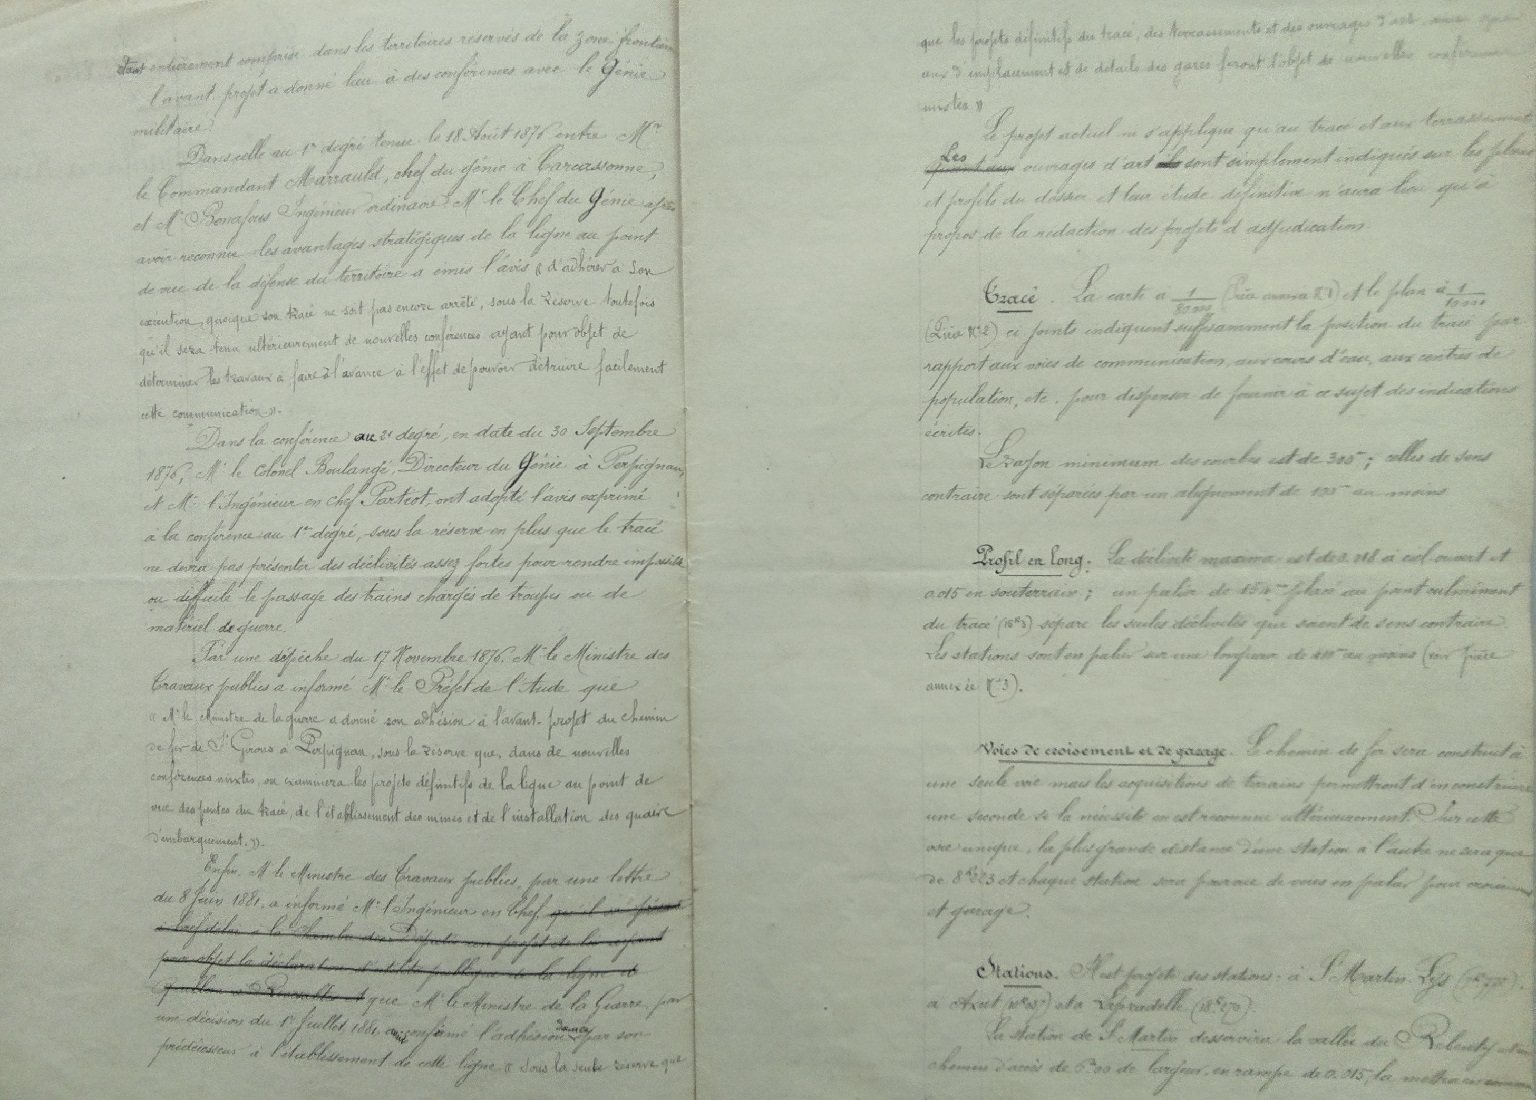 étant entièrement comprise dans les territoires réservés de la zone frontière
l'avant-projet a donné lieu à des conférences avec le Génie
militaire.
Dans celle au 1er degré tenue le 18 Août 1876 entre Mr
le Commandant Marrauld, chef du génie à Carcassonne,
et Mr Bonafous Ingénieur ordinaire, Mr le Chef du Génie après
avoir reconnu les avantages stratégiques de la ligne au point
de vue de la défense du territoire a émis l'avis « d'adhérer à son
exécution, quoique son tracé ne soit pas encore arrêté, sous la réserve toutefois
qu'il sera tenu ultérieurement de nouvelles conférences ayant pour objet de
déterminer les travaux à faire à l'avance à l'effet de pouvoir détruire facilement
cette communication ».
Dans la conférence au 2e degré, en date du 30 Septembre
1876, Mr le Colonel Boulangé, Directeur du Génie à Perpignan,
et Mr l'Ingénieur en chef Partiot, ont adopté l'avis exprimé
à la conférence au 1er degré, sous la réserve en plus que le tracé
ne devra pas présenter des déclivités assez fortes pour rendre impossible
ou difficile le passage des trains chargés de troupes ou de
matériel de guerre.
Par une dépêche du 17 Novembre 1876, Mr le Ministre des
Travaux publics a informé Mr le Préfet de l'Aude que
« Mr le Ministre de la guerre a donné son adhésion à l'avant-projet du chemin
de fer de St Girons à Perpignan, sous la réserve que, dans de nouvelles
conférences mixtes, on examinera les projets définitifs de la ligne au point de
vue des pentes du tracé, de l'établissement des mines et de l'installation des quais
d'embarquement. ».
Enfin, Mr le Ministre des Travaux publics, par une lettre
du 8 Juin 1881, a informé Mr l'Ingénieur en Chef,
à la Chambre des Députés un projet de loi ayant
pour objet la déclaration d'utilité publique de la ligne de
Quillan à Rivesaltes et que Mr le Ministre de la Guerre, par
une décision du 1er Juillet 1881, confirmé l'adhésion donnée par son
prédécesseur à l'établissement de cette ligne « sous la seule réserve que
que les projets définitifs du tracé, des terrassements et des ouvrages d'art
aux d'emplacement et de détails des gares feront l'objet de nouvelles conférences
mixtes »
Le projet actuel ne s'applique qu'au tracé et aux terrassements
Les
quant aux ouvrages d'art ils sont simplement indiqués sur les plans
et profils du dossier et leur étude définitive n'aura lieu qu'à
propos de la rédaction des projets d'adjudication.
Tracé. La carte à 1/80000 (Pièce annexe N°1) et le plan à 1/10000
(Pièce N°2) ci joints indiquent suffisamment la position du tracé par
rapport aux voies de communication, aux cours d'eau, aux centres de
population, etc. pour dispenser de fournir à ce sujet des indications
écrites.
Le rayon minimum des courbes est de 300m; celles de sens
contraire sont séparées par un alignement de 100m au moins
Profil en long. La déclivité maxima est de 0.018 à ciel ouvert et
0.015 en souterrain; un palier de placé au point culminant
du tracé sépare les seules déclivités qui soient de sens contraire.
Les stations sont en palier sur une longueur de au moins (voir pièce
annexée N°3).
Voies de croisement et de garage. Le chemin de fer sera construit à
une seule voie mais les acquisitions de terrains permettront d'en construire
une seconde si la nécessité en est reconnue ultérieurement. Sur cette
voie unique, la plus grande distance d'une station à l'autre ne sera que
de 8k223 et chaque station sera pourvue de voies en palier pour croisement
et garage.
Stations. Il est projeté des stations: à St Martin-Lys
à Axat et à Lapradelle (18k270).
La station de St Martin desservira la vallée du Rebenty
chemin d'accès de 6m00 de largeur, en rampe de 0.015, la mettra en